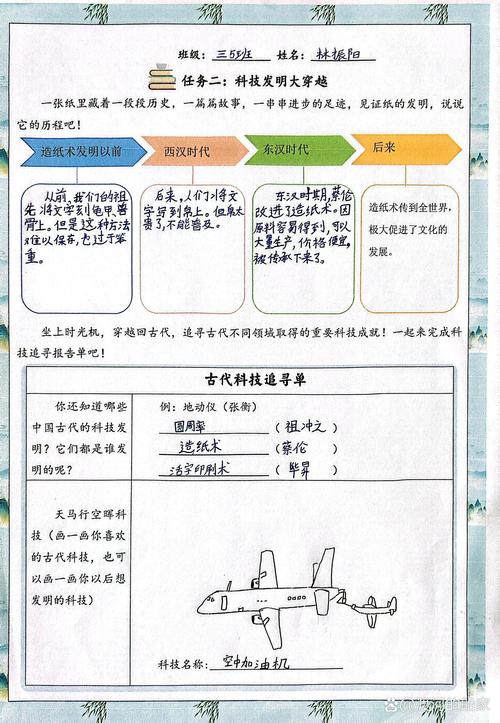 班级：三5班 姓名：林振阳
任务二：科技发明大穿越
一张纸里藏着一段段历史，一篇篇故事，一串串进步的足迹，见证纸的发明，说说
它的历程吧！
造纸术发明以前
西汉时代
东汉时代
后来
从前，我们的祖
先将文字刻龟甲、兽
骨上。但是这种方法
难以保存，也过于笨
重。
后来，人们将文
字写到帛上。但帛太
贵了，不能普及。
东汉时期，蔡伦
改进了造纸术。因
原料容易得到，可以
大量生产，价格便宜，
被传承下来了。
造纸术传到全世界，
极大促进了文化的
发展。
坐上时光机，穿越回古代，追寻古代不同领域取得的重要科技成就！一起来完成科
技追寻报告单吧！
古代科技追寻单
你还知道哪些
中国古代的科技发
明？它们都是谁发
明的呢？
例：地动仪（张衡）
圆周率（祖冲之）
造纸术（蔡伦）
活字印刷术（毕昇）
天马行空晖科
技（画一画你喜欢
的古代科技，也可
以画一画你以后想
发明的科技）
科技名称：空中加油机